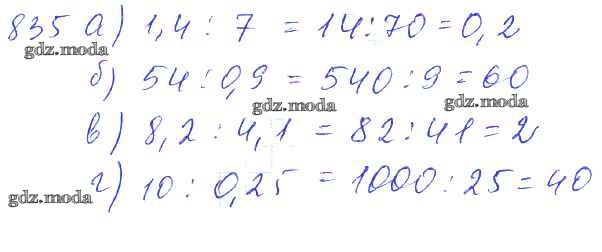 835 а) 1,4 : 7 = 14:70 = 0,2
gdz.moda
gdz.moda
б) 54 : 0,9 = 540 : 9 = 60
gdz.moda
gdz.moda
в) 8,2 : 4,1 = 82 : 41 = 2
г) 10 : 0,25 = 1000 : 25 = 40
gdz.moda